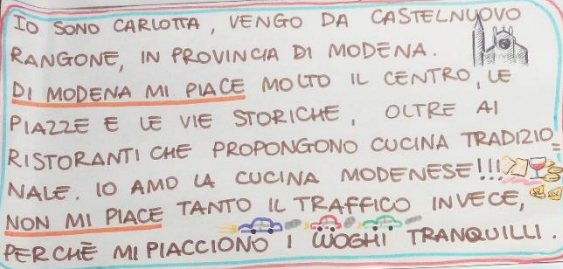 IO SONO CARLOTTA, VENGO DA CASTELNUOVO
RANGONE, IN PROVINCIA DI MODENA.
DI MODENA MI PIACE MOLTO IL CENTRO, LE
PIAZZE E LE VIE STORICHE, OLTRE AI
RISTORANTI CHE PROPONGONO CUCINA TRADIZIO=
NALE. IO AMO LA CUCINA MODENESE!!!
NON MI PIACE TANTO IL TRAFFICO INVECE,
PERCHÈ MI PIACCIONO I LUOGHI TRANQUILLI.